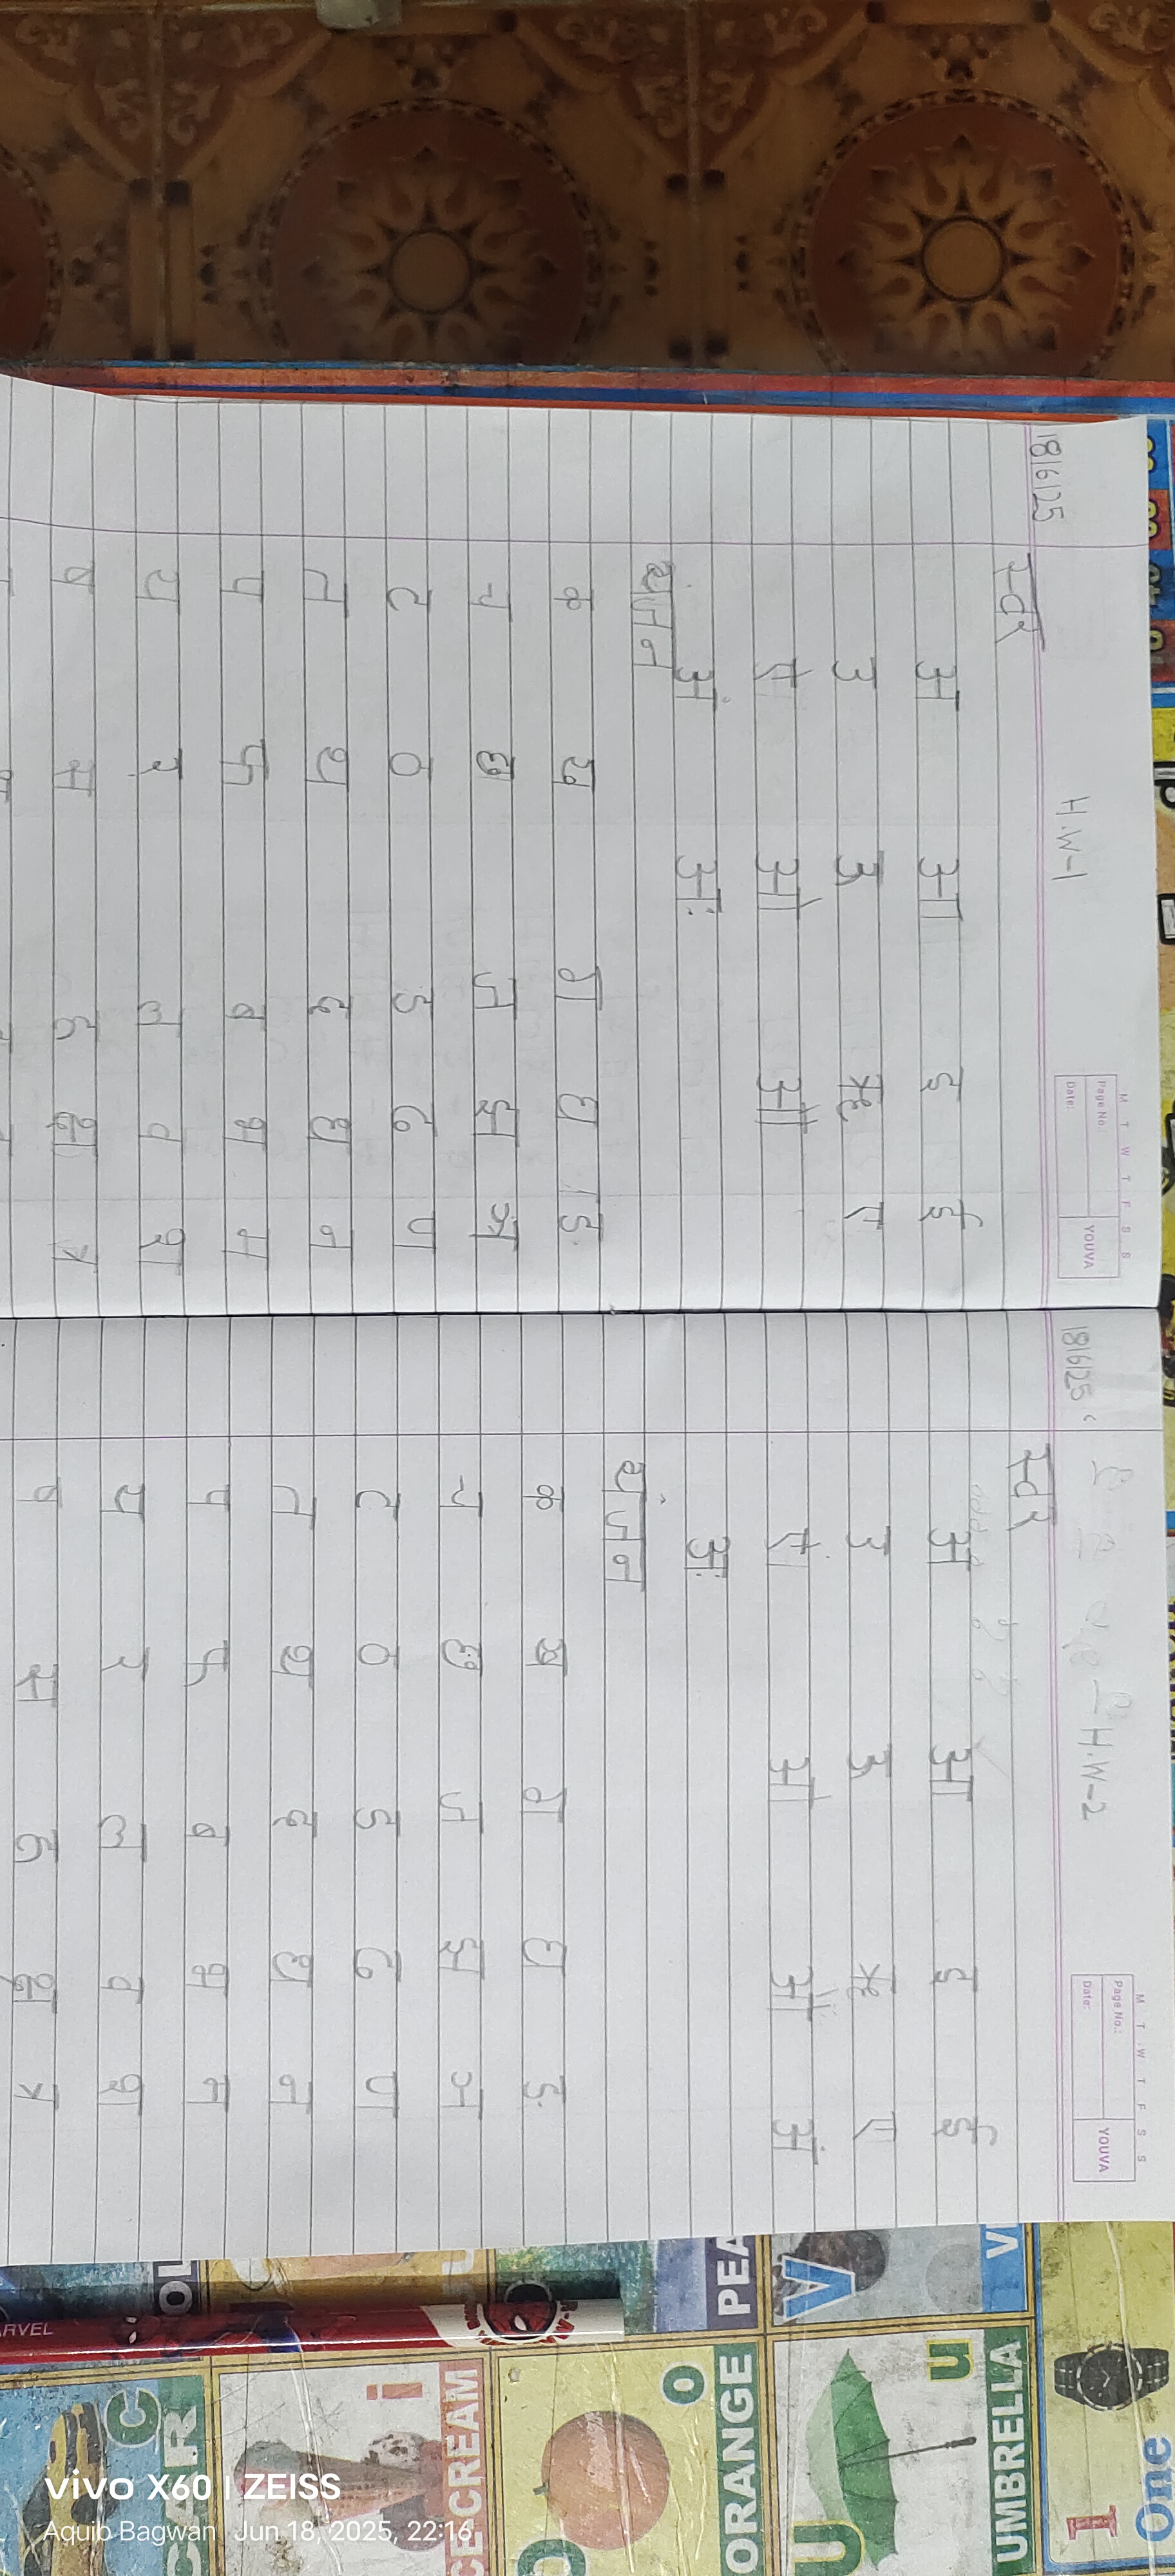 18/6/25
H.W-1
M T W T F S S
Page No.:
Date:
YOUVA
स्वर
अ आ इ ई
उ ऊ ऋ ए
ऐ ओ औ
अं अः
यंजन
क ख ग घ ङ
च छ ज झ ञ
ट ठ ड ढ ण
त थ द ध न
प फ ब भ म
य र ल व श
ष स ह क्ष त्र
18/6/25
H.W-2
M T W T F S S
Page No.:
Date:
YOUVA
स्वर
अ आ इ ई
उ ऊ ऋ ए
ऐ ओ औ अं
अः
यंजन
क ख ग घ ङ
च छ ज झ ञ
ट ठ ड ढ ण
त थ द ध न
प फ ब भ म
य र ल व श
ष स ह क्ष त्र
V
PEA
u
UMBRELLA
U
O
ORANGE
i
CECREAM
C
CAR
1
One
ARVEL
vivo X60 | ZEISS
Aquib Bagwan Jun 18, 2025, 22:16